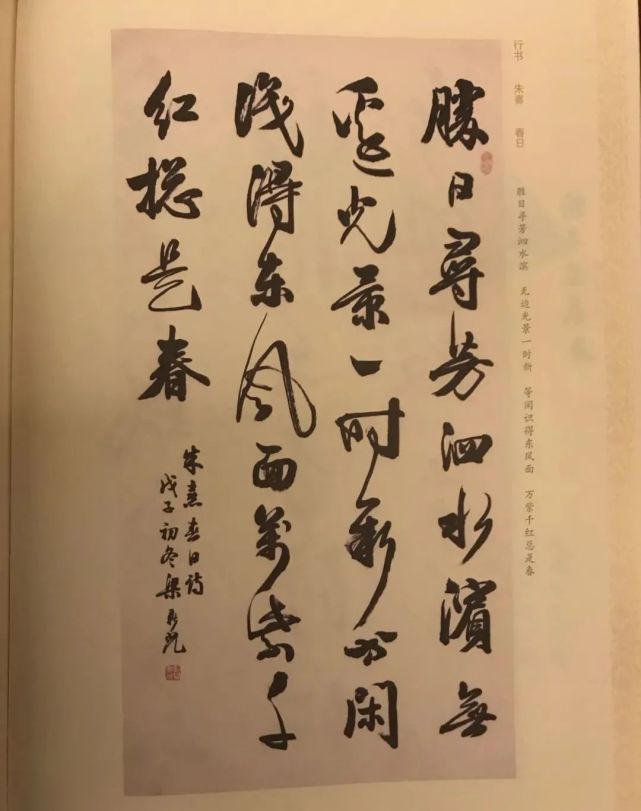 行书 朱熹 春日
胜日寻芳泗水滨 无边光景一时新 等闲识得东风面 万紫千红总是春
勝日尋芳泗水濱無
边光景一时新等闲
识得东风面万紫千
红总是春
朱熹春日诗
戊子初冬梁